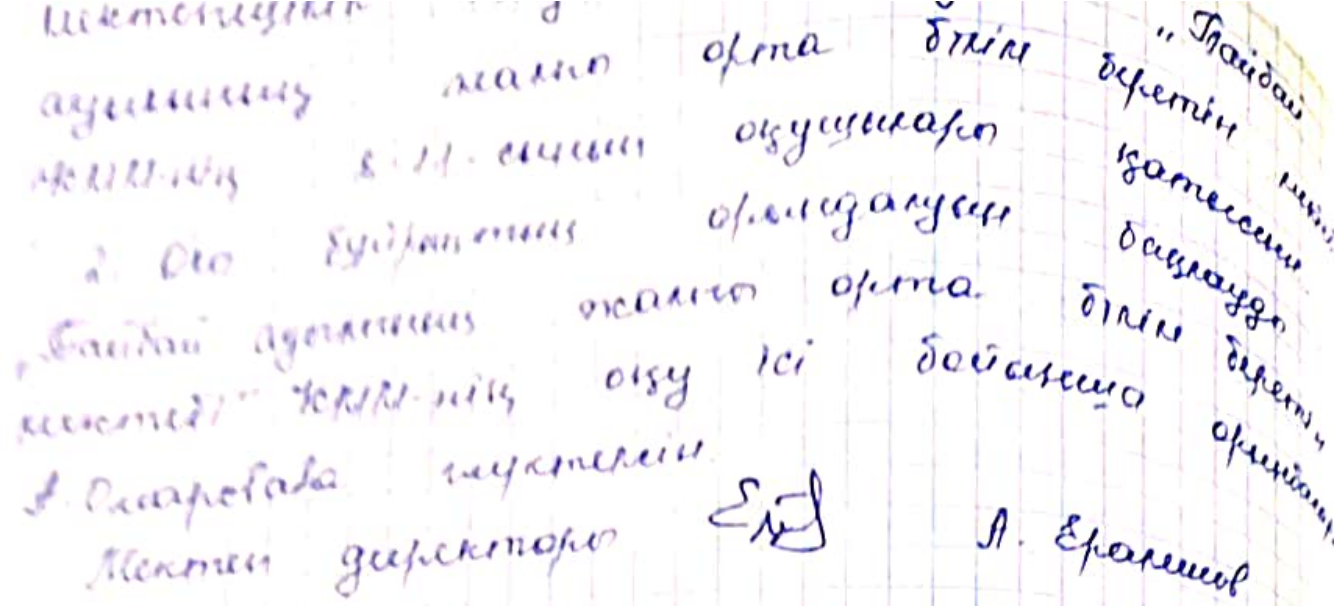 "Байбай
ауылының жалпы орта білім беретін
КММ-нің 8-11 сынып оқушылары қатыссын.
2. Осы бұйрықтың орындалуын бақылауды
"Байбай ауылының жалпы орта білім беретін
мектебі" КММ-нің оқу ісі бойынша орынбасары
А. Омарбаева жүктелсін.
Мектеп директоры А. Ералиев